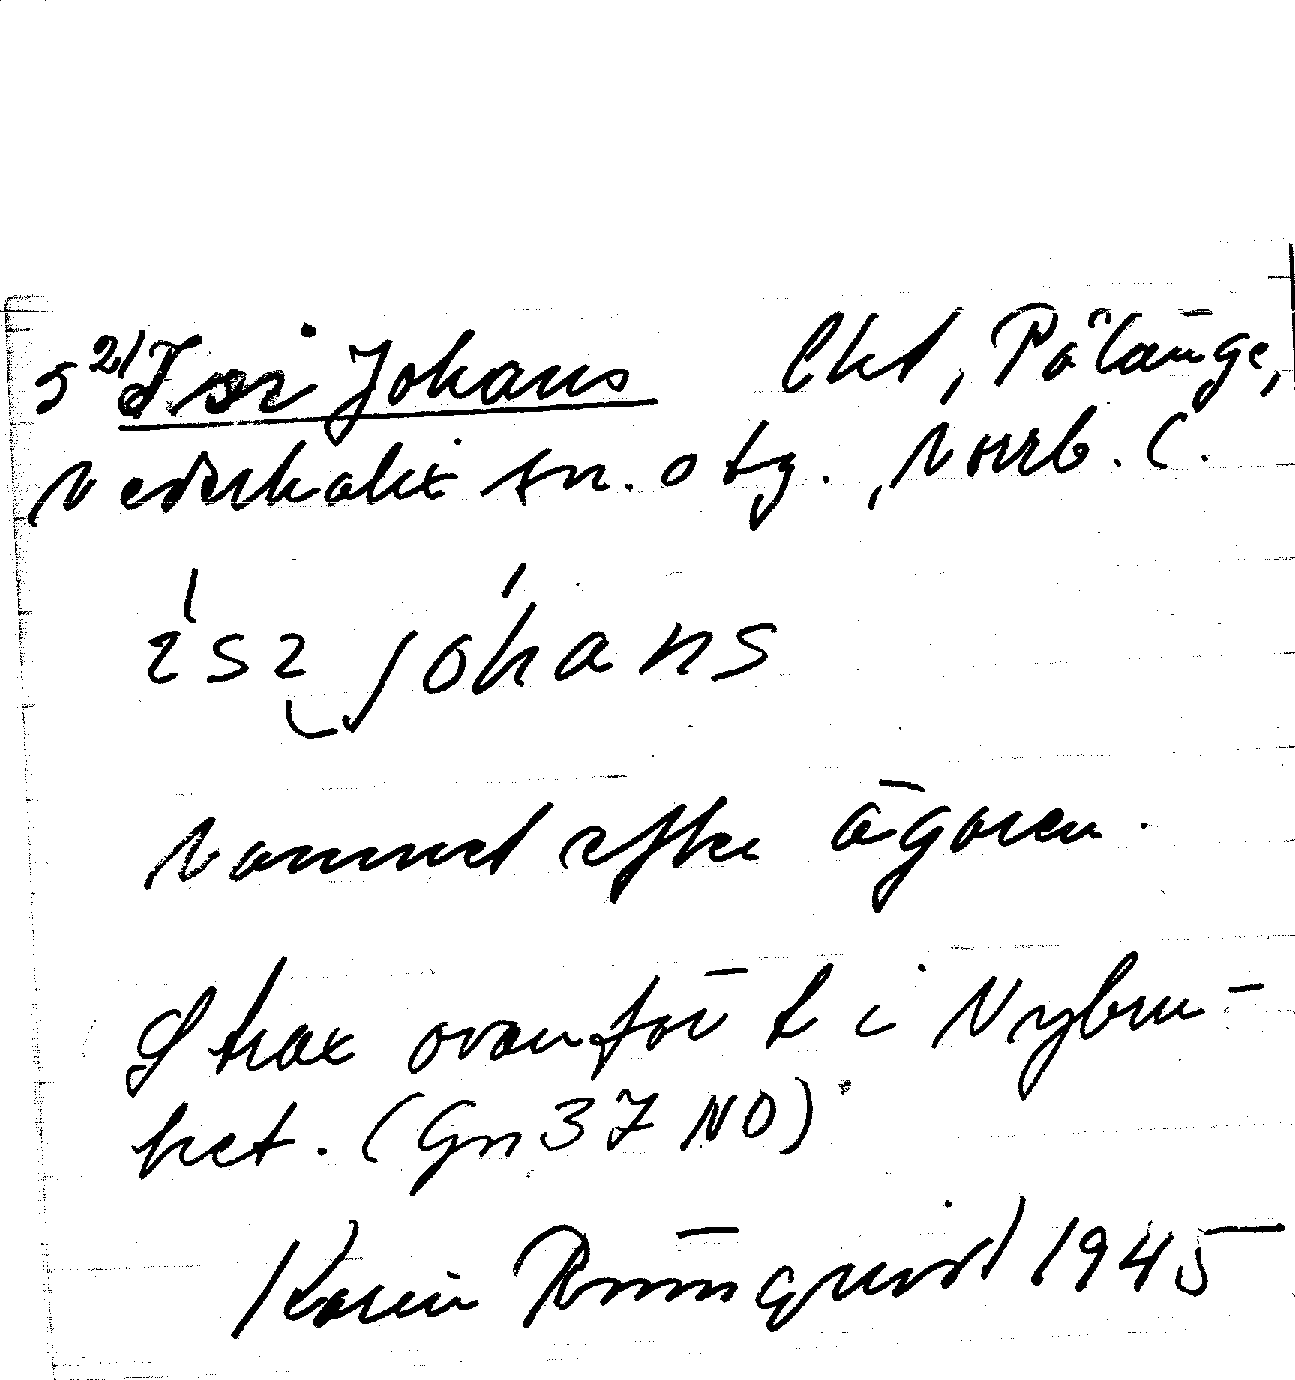 5 21 Isi Johans Lht, Pålänge,
Nederkalix sn. o tg., Norrb. l.
ısı johans
Namnet efter ägaren.
Strax ovanför t i Nybru-
ket. (Gn 37 NO)
Karin Rönnqvist 1945